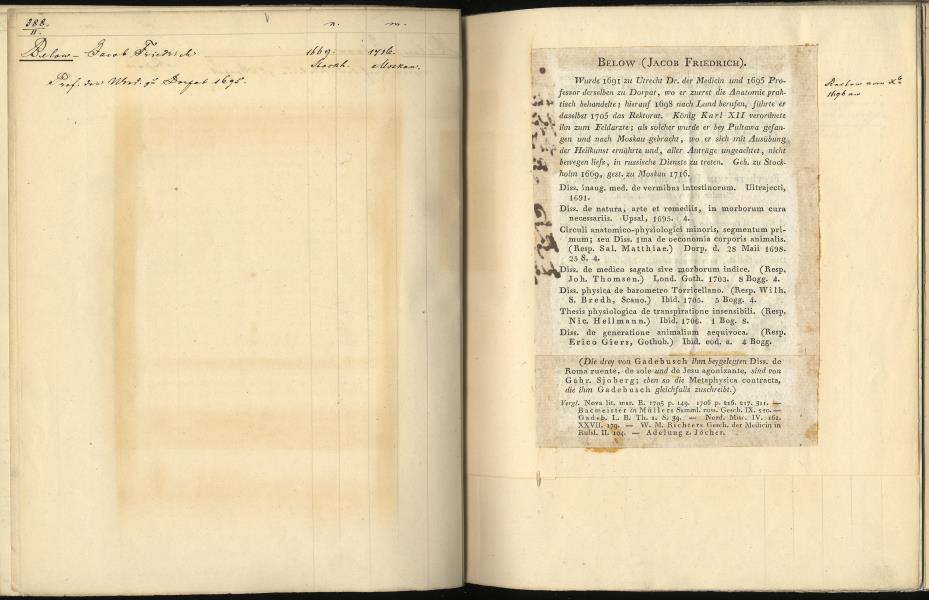 388.
II.
n. m.
Below - Jacob Friedrich 1669. 1716.
Stockh. Moskau.
Prof. der Med. zu Dorpat 1695.
BELOW (JACOB FRIEDRICH).
Wurde 1691 zu Utrecht Dr. der Medicin und 1695 Pro-
fessor derselben zu Dorpat, wo er zuerst die Anatomie prak-
tisch behandelte; hierauf 1698 nach Lund berufen, führte er
daselbst 1705 das Rektorat. König Karl XII verordnete
ihn zum Feldarzte; als solcher wurde er bey Pultawa gefan-
gen und nach Moskau gebracht, wo er sich mit Ausübung
der Heilkunst ernährte und, aller Anträge ungeachtet, nicht
bewegen liefs, in russische Dienste zu treten. Geb. zu Stock-
holm 1669, gest. zu Moskau 1716.
Diss. inaug. med. de vermibus intestinorum. Ultrajecti,
1691.
Diss. de natura, arte et remediis, in morborum cura
necessariis. Upsal, 1695. 4.
Circuli anatomico-physiologici minoris, segmentum pri-
mum; seu Diss. 1ma de oeconomia corporis animalis.
(Resp. Sal. Matthiae.) Dorp. d. 28 Maii 1698.
25 S. 4.
Diss. de medico sagato sive morborum indice. (Resp.
Joh. Thomsen.) Lond. Goth. 1703. 8 Bogg. 4.
Diss. physica de barometro Torricellano. (Resp. Wilh.
S. Bredh, Scano.) Ibid. 1705. 5 Bogg. 4.
Thesis physiologica de transpiratione insensibili. (Resp.
Nic. Hellmann.) Ibid. 1706. 1 Bog. 8.
Diss. de generatione animalium aequivoca. (Resp.
Erico Giers, Gothob.) Ibid. eod. a. 4 Bogg.
(Die drey von Gadebusch ihm beygelegten Diss. de
Roma ruente, de sole und de Jesu agonizante, sind von
Gabr. Sjoberg; eben so die Metaphysica contracta,
die ihm Gadebusch gleichfalls zuschreibt.)
Vergl. Nova lit. mar. B. 1705 p. 149. 1706 p. 216. 217. 311. —
Bacmeister in Müllers Samml. russ. Gesch. IX. 210. —
Gadeb. L. B. Th. 1. S. 39. — Nord. Misc. IV. 162.
XXVII. 179. — W. M. Richters Gesch. der Medicin in
Rufsl. II. 104. — Adelung z. Jöcher.
1696